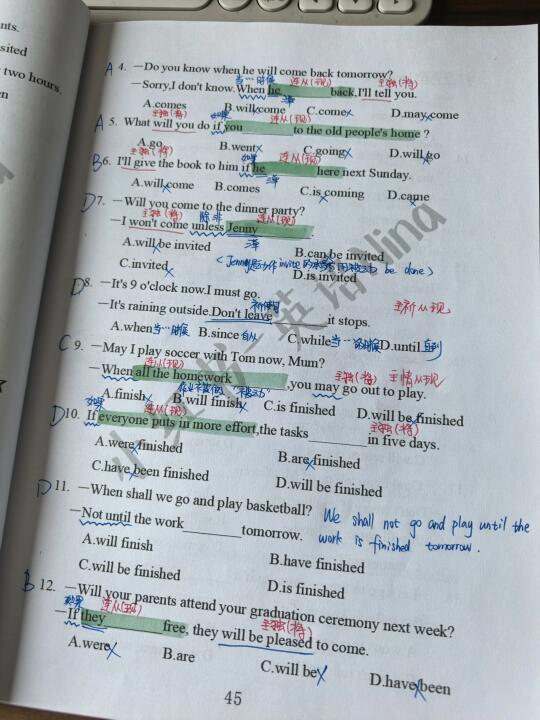 nts.
sited
two hours.
en
A 4. —Do you know when he will come back tomorrow?
当…时候 连从(现) 主独(将)
—Sorry,I don't know.When he________back,I'll tell you.
A.comes B.will come C.come D.may come
主独(将) 如果 连从(现)
A 5. What will you do if you________to the old people's home ?
A.go B.went C.going D.will go
主独(将) 如果 连从(现)
B 6. I'll give the book to him if he________here next Sunday.
A.will come B.comes C.is coming D.came
D 7. —Will you come to the dinner party?
主独(将) 除非 连从(现)
—I won't come unless Jenny________.
A.will be invited B.can be invited
C.invited D.is invited
D 8. —It's 9 o'clock now.I must go.
主祈从现
—It's raining outside.Don't leave________it stops.
A.when 当…时候 B.since 自从 C.while 当…的时候 D.until 直到
C 9. —May I play soccer with Tom now, Mum?
连从(现) 主独(将) 主情从现
—When all the homework________,you may go out to play.
A.finish B.will finish C.is finished D.will be finished
如果 连从(现) 主独(将)
D 10. If everyone puts in more effort,the tasks________in five days.
A.were finished B.are finished
C.have been finished D.will be finished
D 11. —When shall we go and play basketball?
—Not until the work________tomorrow.
We shall not go and play until the
work is finished tomorrow.
A.will finish B.have finished
C.will be finished D.is finished
B 12. —Will your parents attend your graduation ceremony next week?
如果 连从(现) 主独(将)
—If they________free, they will be pleased to come.
A.were B.are C.will be D.have been
45
小红书-英语Nina